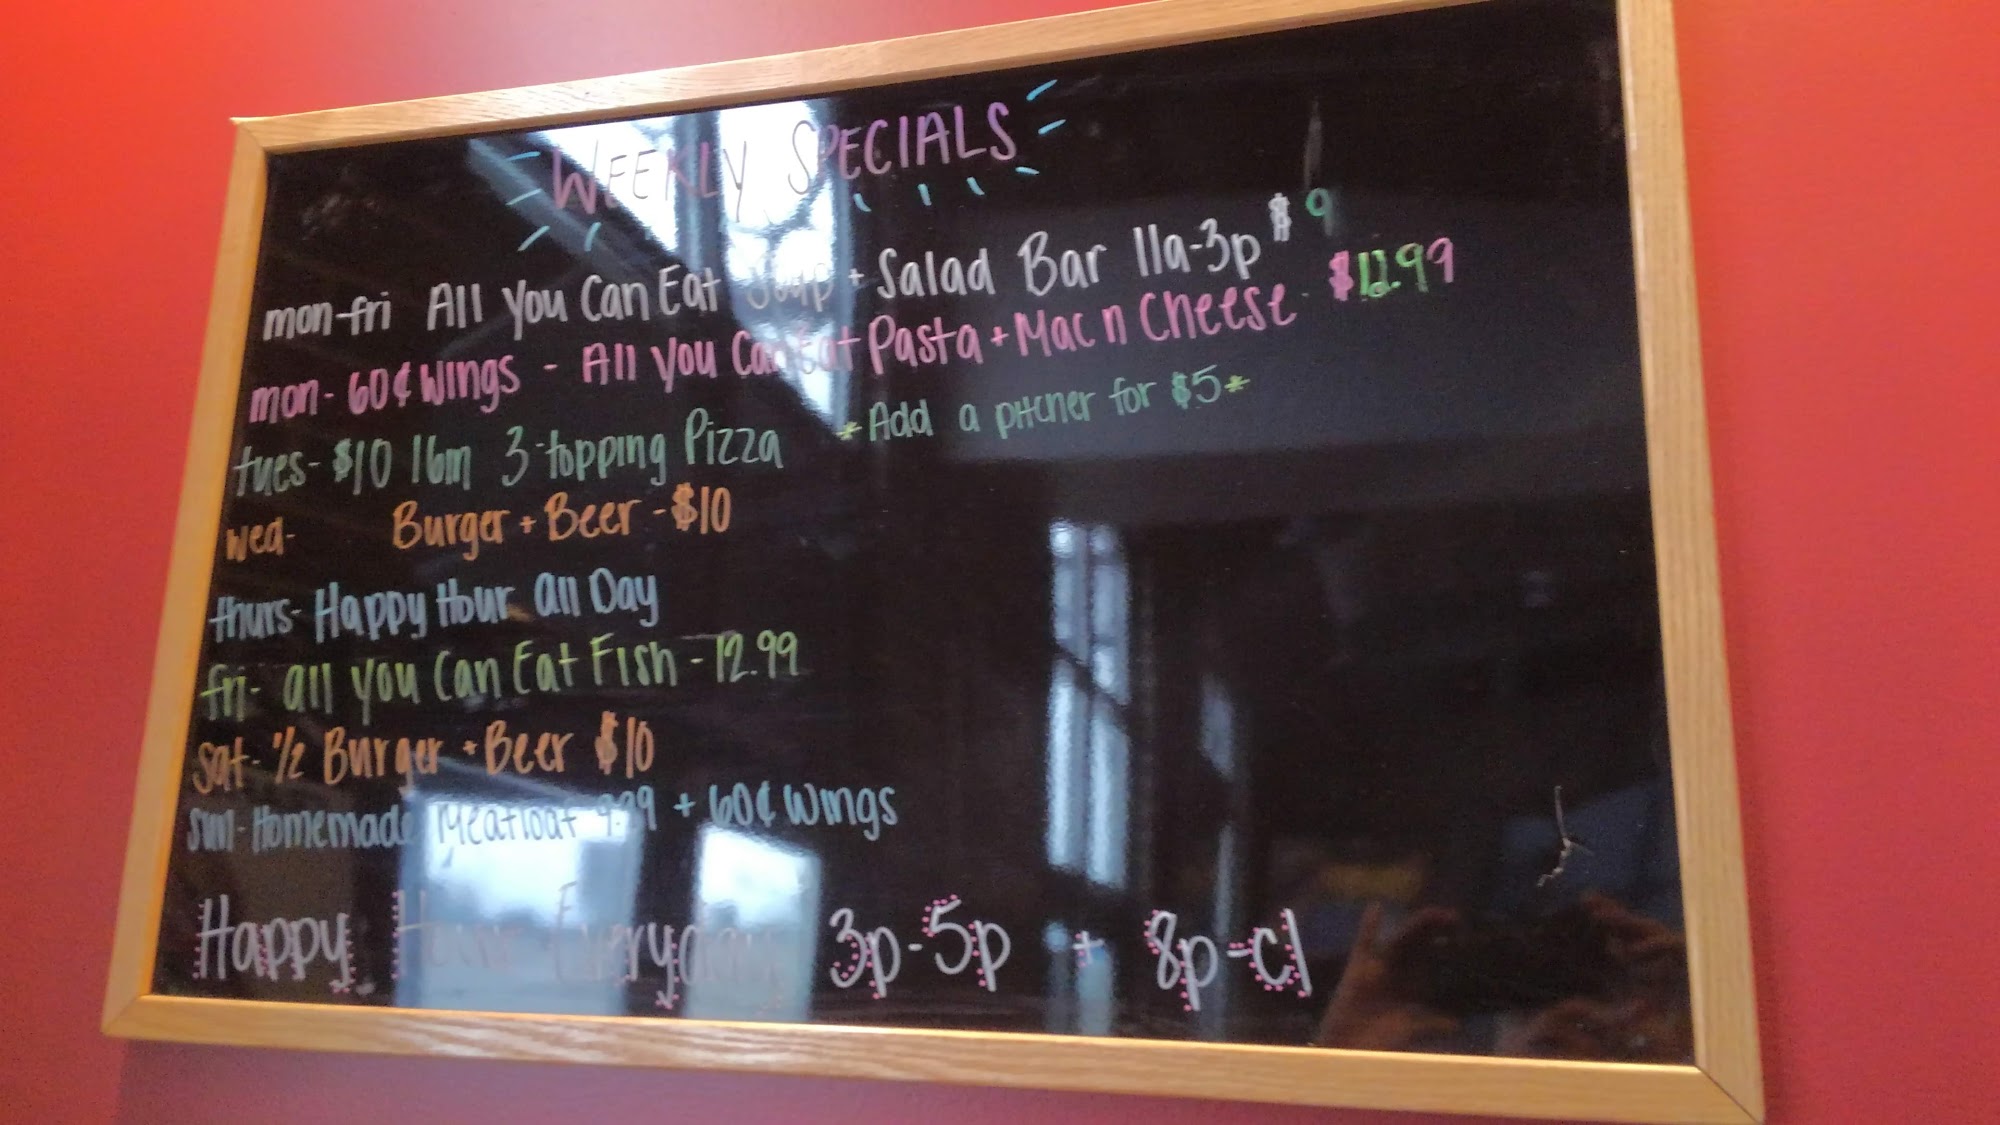 WEEKLY SPECIALS
mon-fri All You Can Eat Soup + Salad Bar 11a-3p $9
mon- 60¢ Wings - All You Can Eat Pasta + Mac n Cheese - $12.99
tues- $10 16in 3-topping Pizza *Add a pitcher for $5*
wed- Burger + Beer - $10
thurs- Happy Hour all Day
fri- all you Can Eat Fish - 12.99
sat- 1/2 Burger + Beer $10
sun- Homemade Meatloaf 9.99 + 60¢ Wings
Happy Hour Everyday 3p-5p + 8p-cl